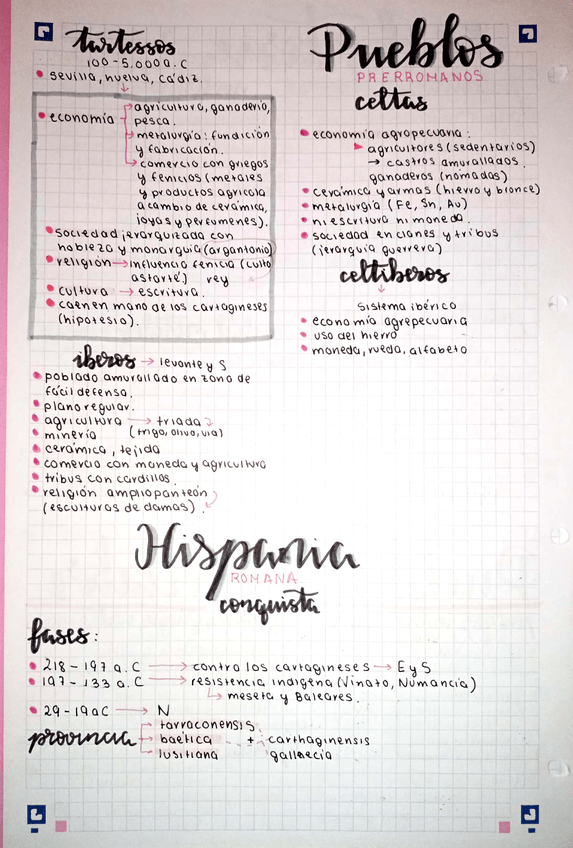 Pueblos
PRERROMANOS
tartessos
100-5.000a.C
sevilla, huelva, cádiz.
economía
agricultura, ganadería,
pesca.
metalurgia: fundición
y fabricación.
comercio con griegos
y fenicios (metales
y productos agricola
a cambio de cerámica,
joyas y perfumenes).
sociedad jerarquizada con
nobleza y monarquía (argantonio)
religión → influencia fenicia (culto
astarté) rey
cultura → escritura.
caen en mano de los cartagineses
(hipotesis).
celtas
economía agropecuaria:
agricultores (sedentarios)
→ castros amurallados.
ganaderos (nómadas)
cerámica y armas (hierro y bronce)
metalurgia (Fe, Sn, Au)
ni escritura ni moneda.
sociedad en clanes y tribus
(jerarquía guerrera)
celtíberos
sistema ibérico
economía agrepecuaria
uso del hierro
moneda, rueda, alfabeto
iberos → levante y S
poblado amurallado en zona de
fácil defensa.
plano regular.
agricultura → triada
minería (trigo, olivo, vid)
cerámica, tejida
comercio con moneda y agricultura
tribus con cardillos.
religión ampliopanteón
(esculturas de damas).
Hispania
ROMANA
conquista
fases:
218-197 a.C → contra los cartagineses → E y S
197-133 a.C → resistencia indígena (Viriato, Numancia)
meseta y Baleares.
29-19aC → N
provincia
tarraconensis
baética + carthaginensis
lusitiana gallaecia